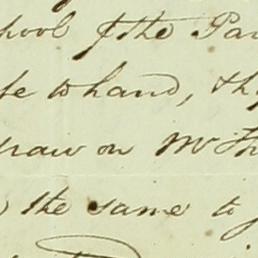 pool of the Pa
fe to hand, th
raw on Mr Th
the same to